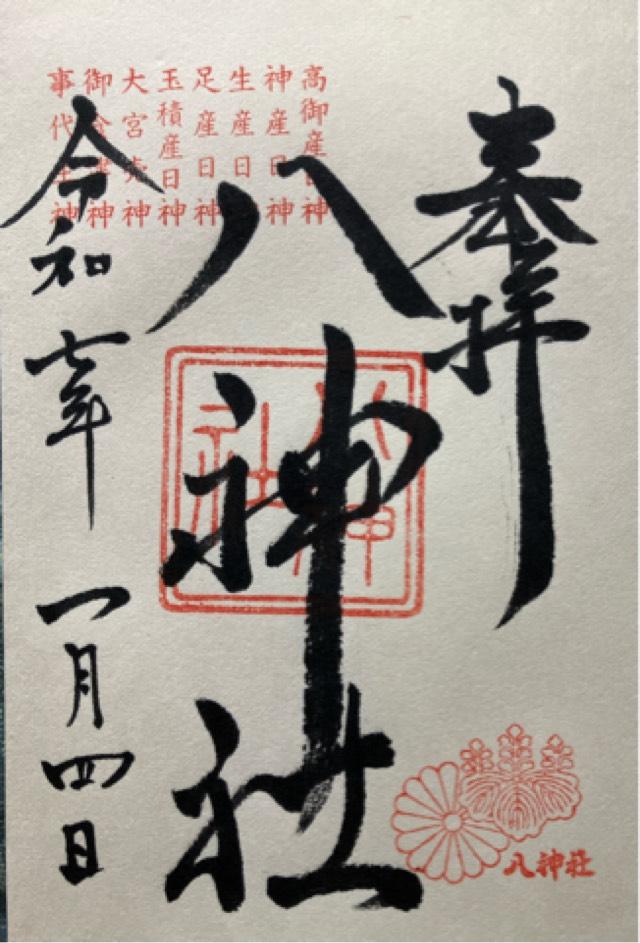 奉拝
高御産日神
神産日神
生産日
足産日神
玉積産日神
大宮売神
御食津神
事代主神
八神社
八神社
令和七年一月四日
八神社